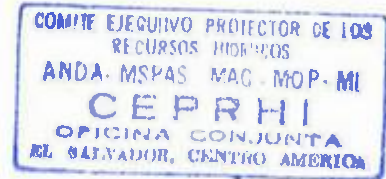 COMITE EJECUTIVO PROTECTOR DE LOS
RECURSOS HIDRICOS
ANDA. MSPAS MAC. MOP. MI
CEPRHI
OFICINA CONJUNTA
EL SALVADOR, CENTRO AMERICA